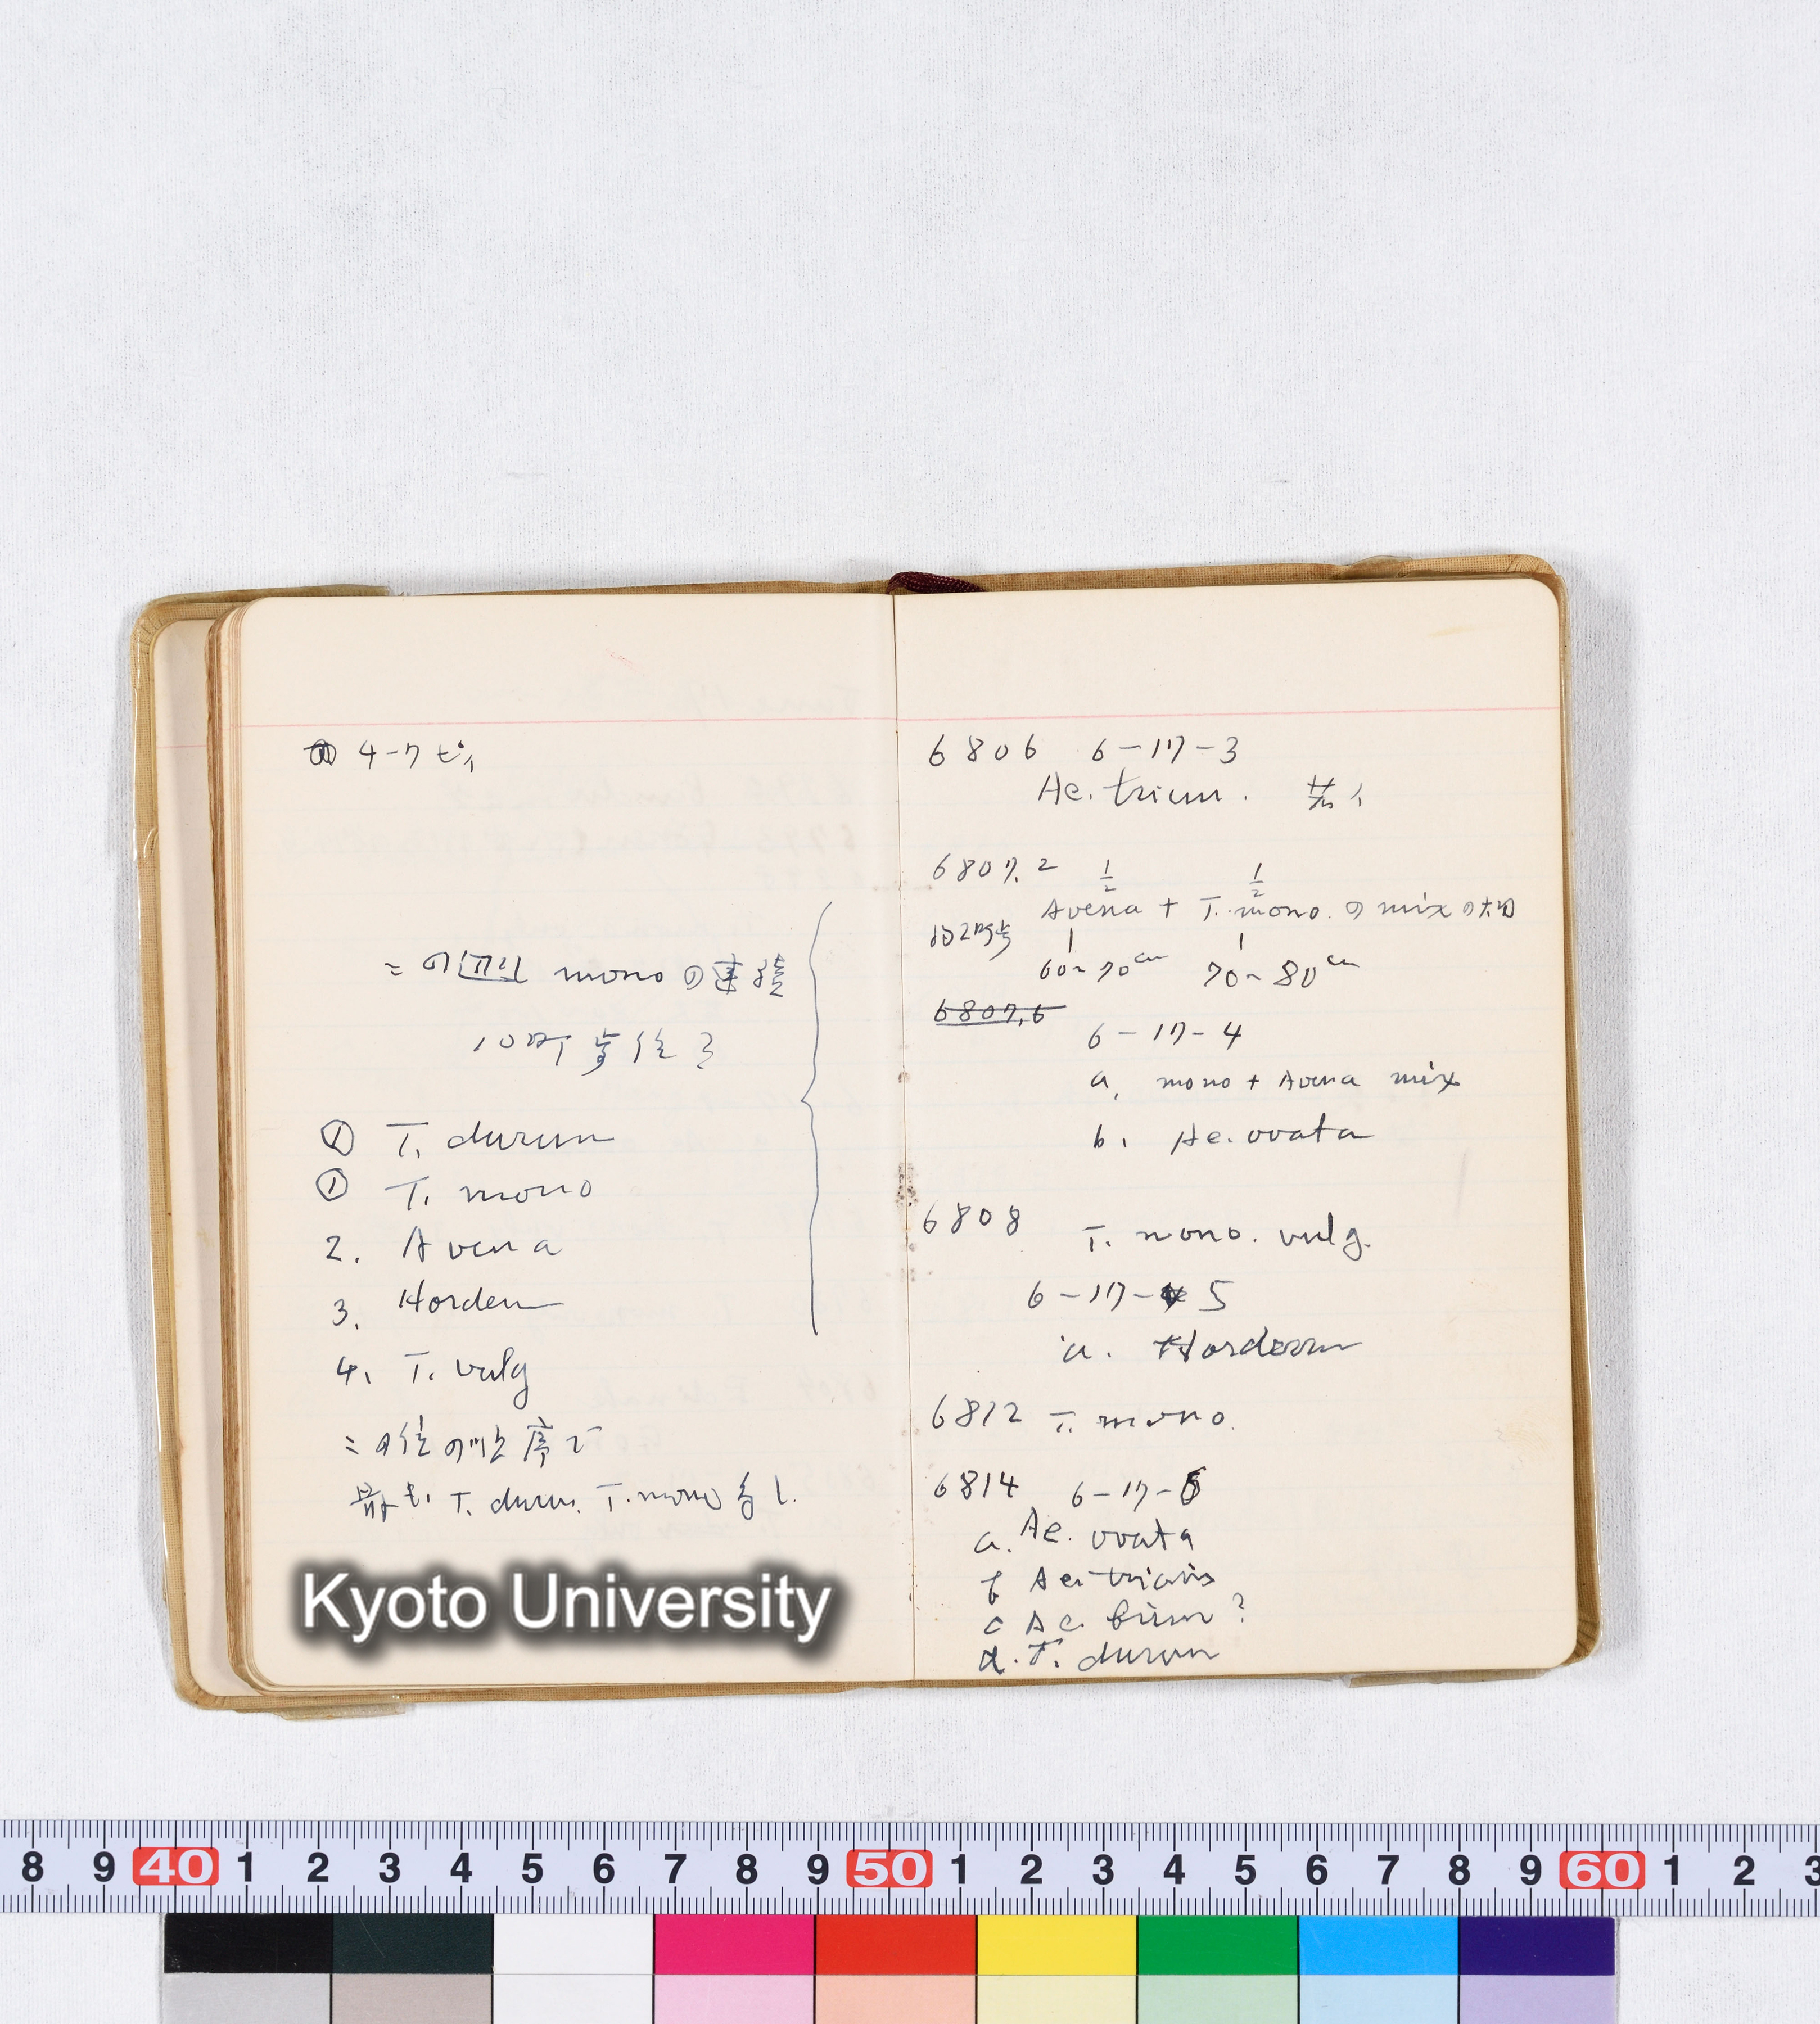 4-7 ヒ゜
= の辺 mono の連続
10町歩位ヲ
① T. durum
① T. mono
2. Avena
3. Hordeum
4. T. vulg
= の位の順序で
最も T. durum. T. mono 多し.
Kyoto University
6806 6-17-3
Ae. triun.
6807.2 1/2 1/2
Avena + T. mono. の mix の大畑
約2町歩
60~70cm 70~80cm
6807.6
6-17-4
a, mono + Avena mix
b, Ae. ovata
6808 T. mono. vulg.
6-17-5
a. Hordeum
6812 T. mono.
6814 6-17-6
a. Ae. ovata
b Ae. triaris
c Ae. biun ?
d. T. durum
8 9 40 1 2 3 4 5 6 7 8 9 50 1 2 3 4 5 6 7 8 9 60 1 2 3